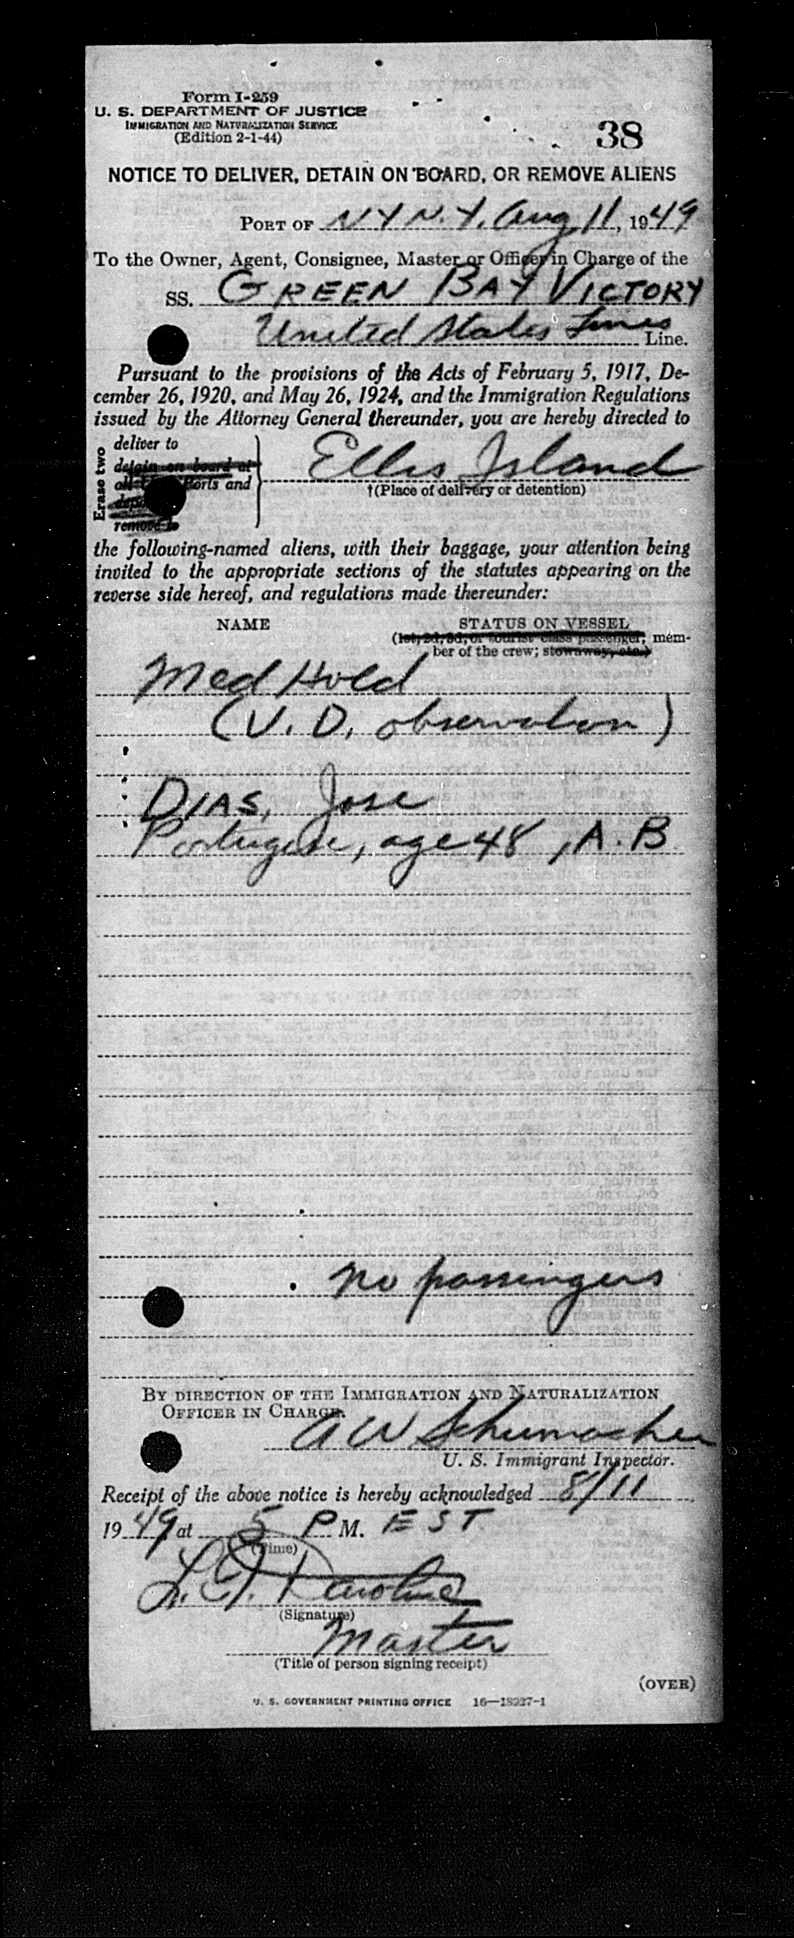 Form I-259
U. S. DEPARTMENT OF JUSTICE
IMMIGRATION AND NATURALIZATION SERVICE
(Edition 2-1-44)
38
NOTICE TO DELIVER, DETAIN ON BOARD, OR REMOVE ALIENS
PORT OF N Y N. Y. Aug 11, 1949
To the Owner, Agent, Consignee, Master or Officer in Charge of the
SS. GREEN BAY VICTORY
United States Lines Line.
Pursuant to the provisions of the Acts of February 5, 1917, De-
cember 26, 1920, and May 26, 1924, and the Immigration Regulations
issued by the Attorney General thereunder, you are hereby directed to
Erase two
deliver to
detain on board at
Ports and
remove to
Ellis Island
†(Place of delivery or detention)
the following-named aliens, with their baggage, your attention being
invited to the appropriate sections of the statutes appearing on the
reverse side hereof, and regulations made thereunder:
NAME STATUS ON VESSEL
(1st, 2d, 3d, or tourist class passenger, mem-
ber of the crew; stowaway, etc.)
Med Hold
(V. D. observation)
DIAS, Jose
Portugese, age 48, A. B
no passingers
BY DIRECTION OF THE IMMIGRATION AND NATURALIZATION
OFFICER IN CHARGE.
A W Schumacher
U. S. Immigrant Inspector.
Receipt of the above notice is hereby acknowledged 8/11
1949 at 5 P M. E S T
(Time)
(Signature)
Master
(Title of person signing receipt)
(OVER)
U. S. GOVERNMENT PRINTING OFFICE 16—18227-1